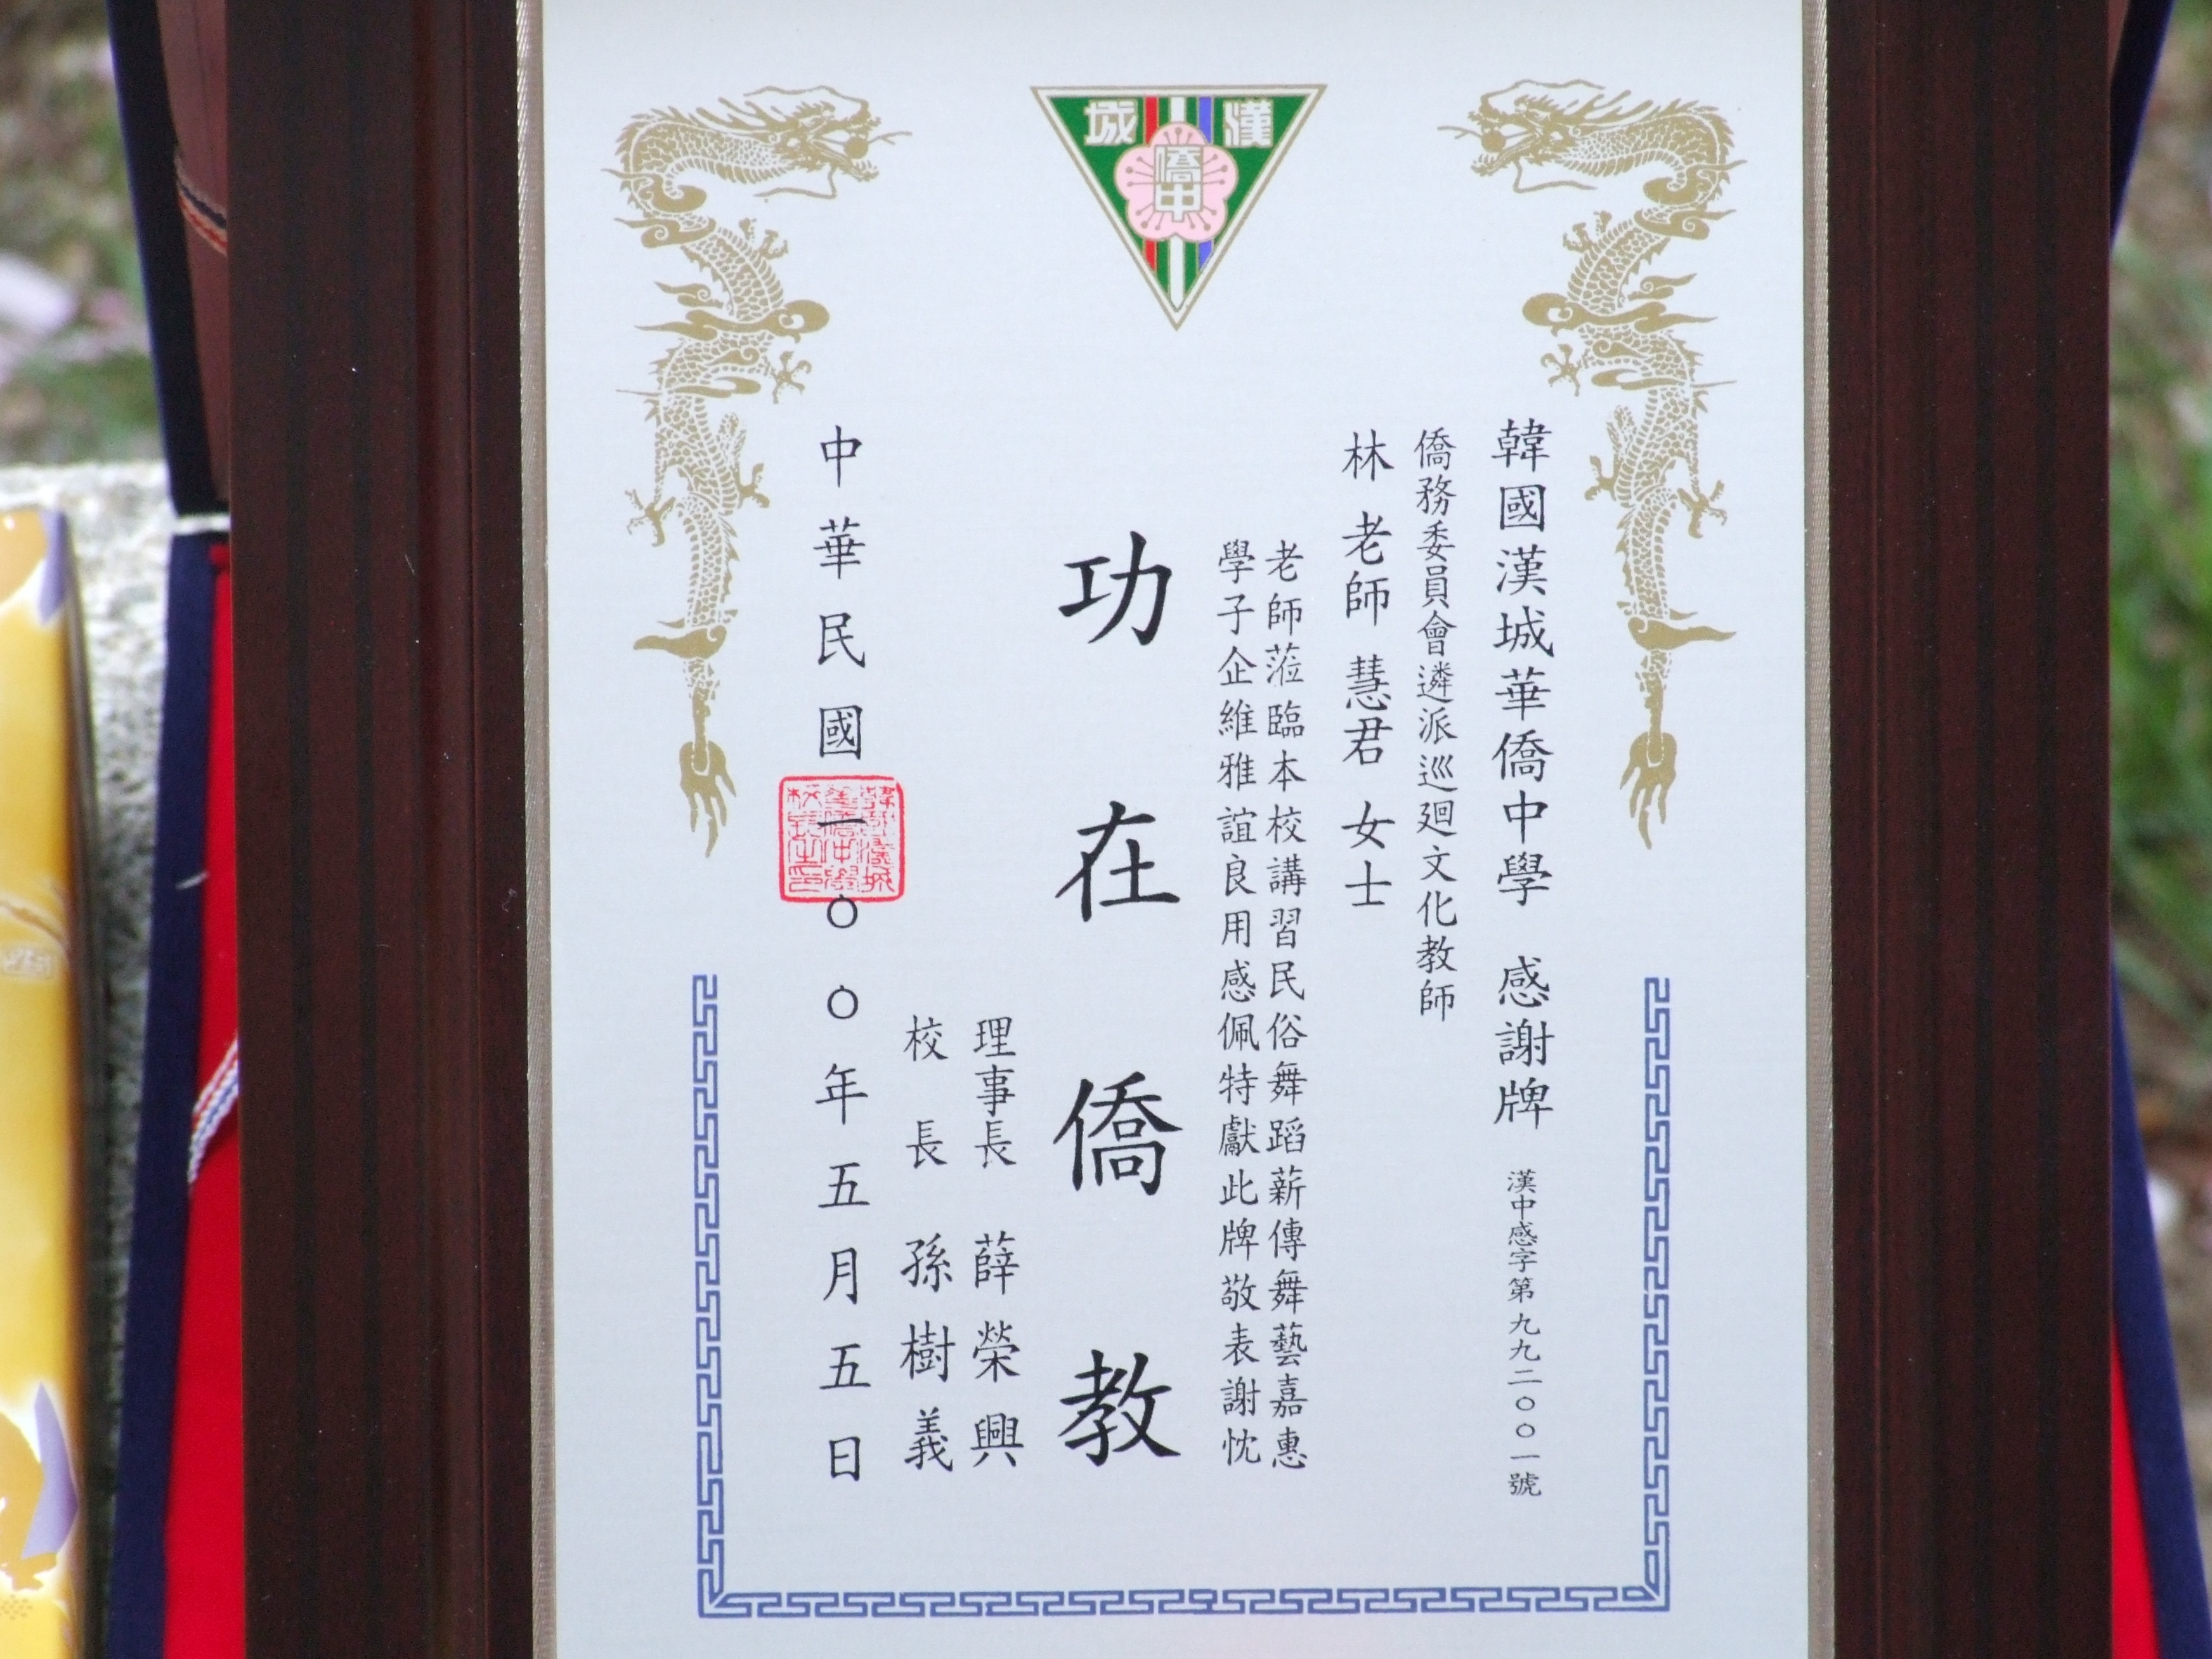 漢城
僑中
韓國漢城華僑中學 感謝牌 漢中感字第九九二〇〇一號
僑務委員會遴派巡廻文化教師
林 老師 慧君 女士
老師蒞臨本校講習民俗舞蹈薪傳舞藝嘉惠
學子企維雅誼良用感佩特獻此牌敬表謝忱
功在僑教
理事長 薛榮興
校長 孫樹義
中華民國一〇〇年五月五日